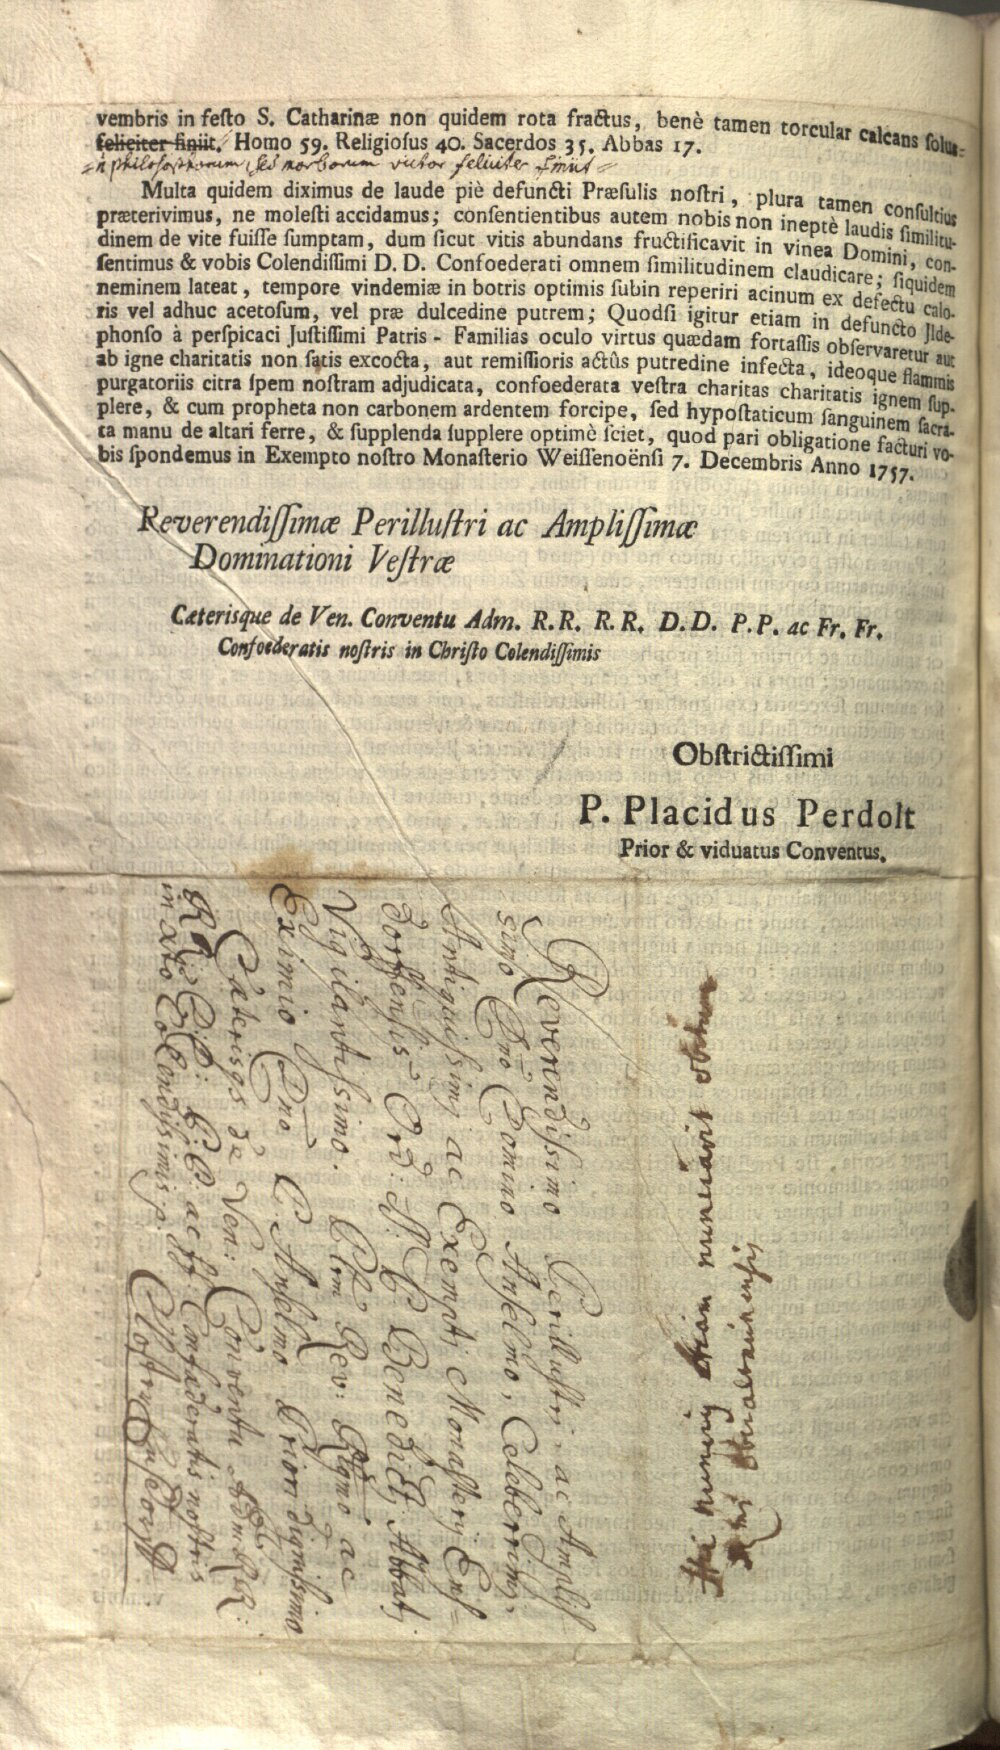 vembris in feſto S. Catharinæ non quidem rota fractus, benè tamen torcular calcans ſolus-
feliciter finiit. Homo 59. Religioſus 40. Sacerdos 35. Abbas 17.
philosophorum, sed morborum victor feliciter finiit
Multa quidem diximus de laude piè defuncti Præſulis noſtri, plura tamen conſultius
præterivimus, ne moleſti accidamus; conſentientibus autem nobis non ineptè laudis ſimilitu-
dinem de vite fuiſſe ſumptam, dum ſicut vitis abundans fructificavit in vinea Domini, con-
ſentimus & vobis Colendiſſimi D. D. Confoederati omnem ſimilitudinem claudicare; ſiquidem
neminem lateat, tempore vindemiæ in botris optimis ſubin reperiri acinum ex defectu calo-
ris vel adhuc acetoſum, vel præ dulcedine putrem; Quodſi igitur etiam in defuncto Jlde-
phonſo à perſpicaci Juſtiſſimi Patris - Familias oculo virtus quædam fortaſſis obſervaretur aut
ab igne charitatis non ſatis excocta, aut remiſſioris actûs putredine infecta, ideoque flammis
purgatoriis citra ſpem noſtram adjudicata, confoederata veſtra charitas charitatis ignem ſup-
plere, & cum propheta non carbonem ardentem forcipe, ſed hypoſtaticum ſanguinem ſacra-
ta manu de altari ferre, & ſupplenda ſupplere optimè ſciet, quod pari obligatione facturi vo-
bis ſpondemus in Exempto noſtro Monaſterio Weiſſenoënſi 7. Decembris Anno 1757.
Reverendiſſimæ Perilluſtri ac Ampliſſimæ
Dominationi Veſtræ
Cæterisque de Ven. Conventu Adm. R.R. R.R. D.D. P.P. ac Fr. Fr.
Confoederatis noſtris in Chriſto Colendiſſimis
Obſtrictiſſimi
P. Placidus Perdolt
Prior & viduatus Conventus.
Reverendissimo Perillustri ac Amplis-
simo Dno Domino Anselmo, Celeberrimi,
Antiquissimi ac Exempti Monasterij Ens-
dorffensis Ord: S. P. Benedicti Abbati
Vigilantissimo. Plm Rev: Rlgmo ac
Eximio Dno P. Anselmo Priori dignissimo
Cæterisqs de Ven: Conventu Adm RR:
RR: DD: PP: ac ff: Confœderatis nostris
in Xto Colendissimis p.
Closter Ensdorff
nunciavit obitum